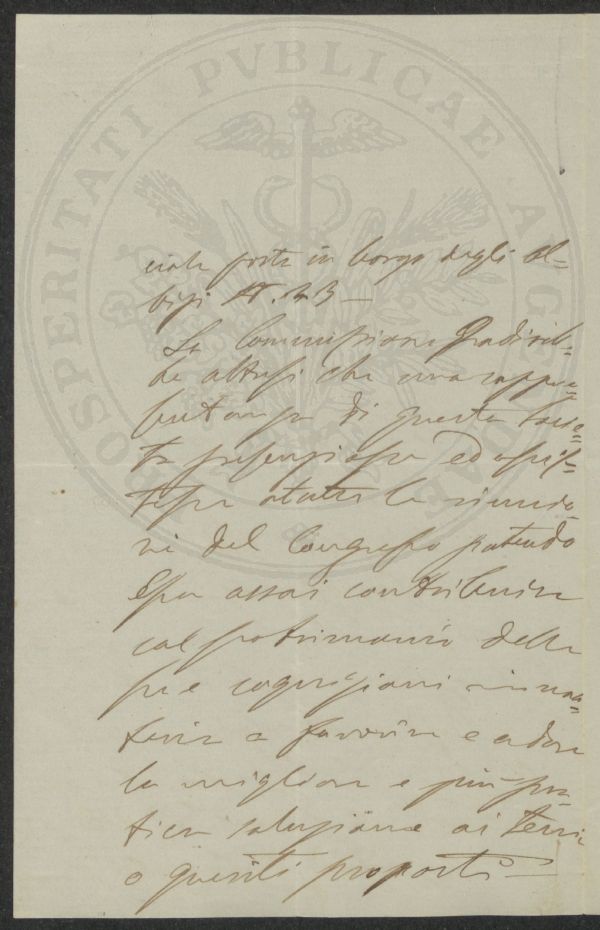 PROSPERITATI PVBLICAE AVGENDAE
ciale posta in borgo degli Al=
bizi N. 23 —
La Commissione gradireb=
be altresì che una rappre=
sentanza di questa Socie=
tà presenziasse ed assis=
tesse a tutte le riunio=
ni del Congresso potendo
Essa assai contribuire
col patrimonio delle
sue cognizioni in ma=
teria a favorire e a dare
la migliore e più pra=
tica soluzione ai temi
o quesiti proposti —